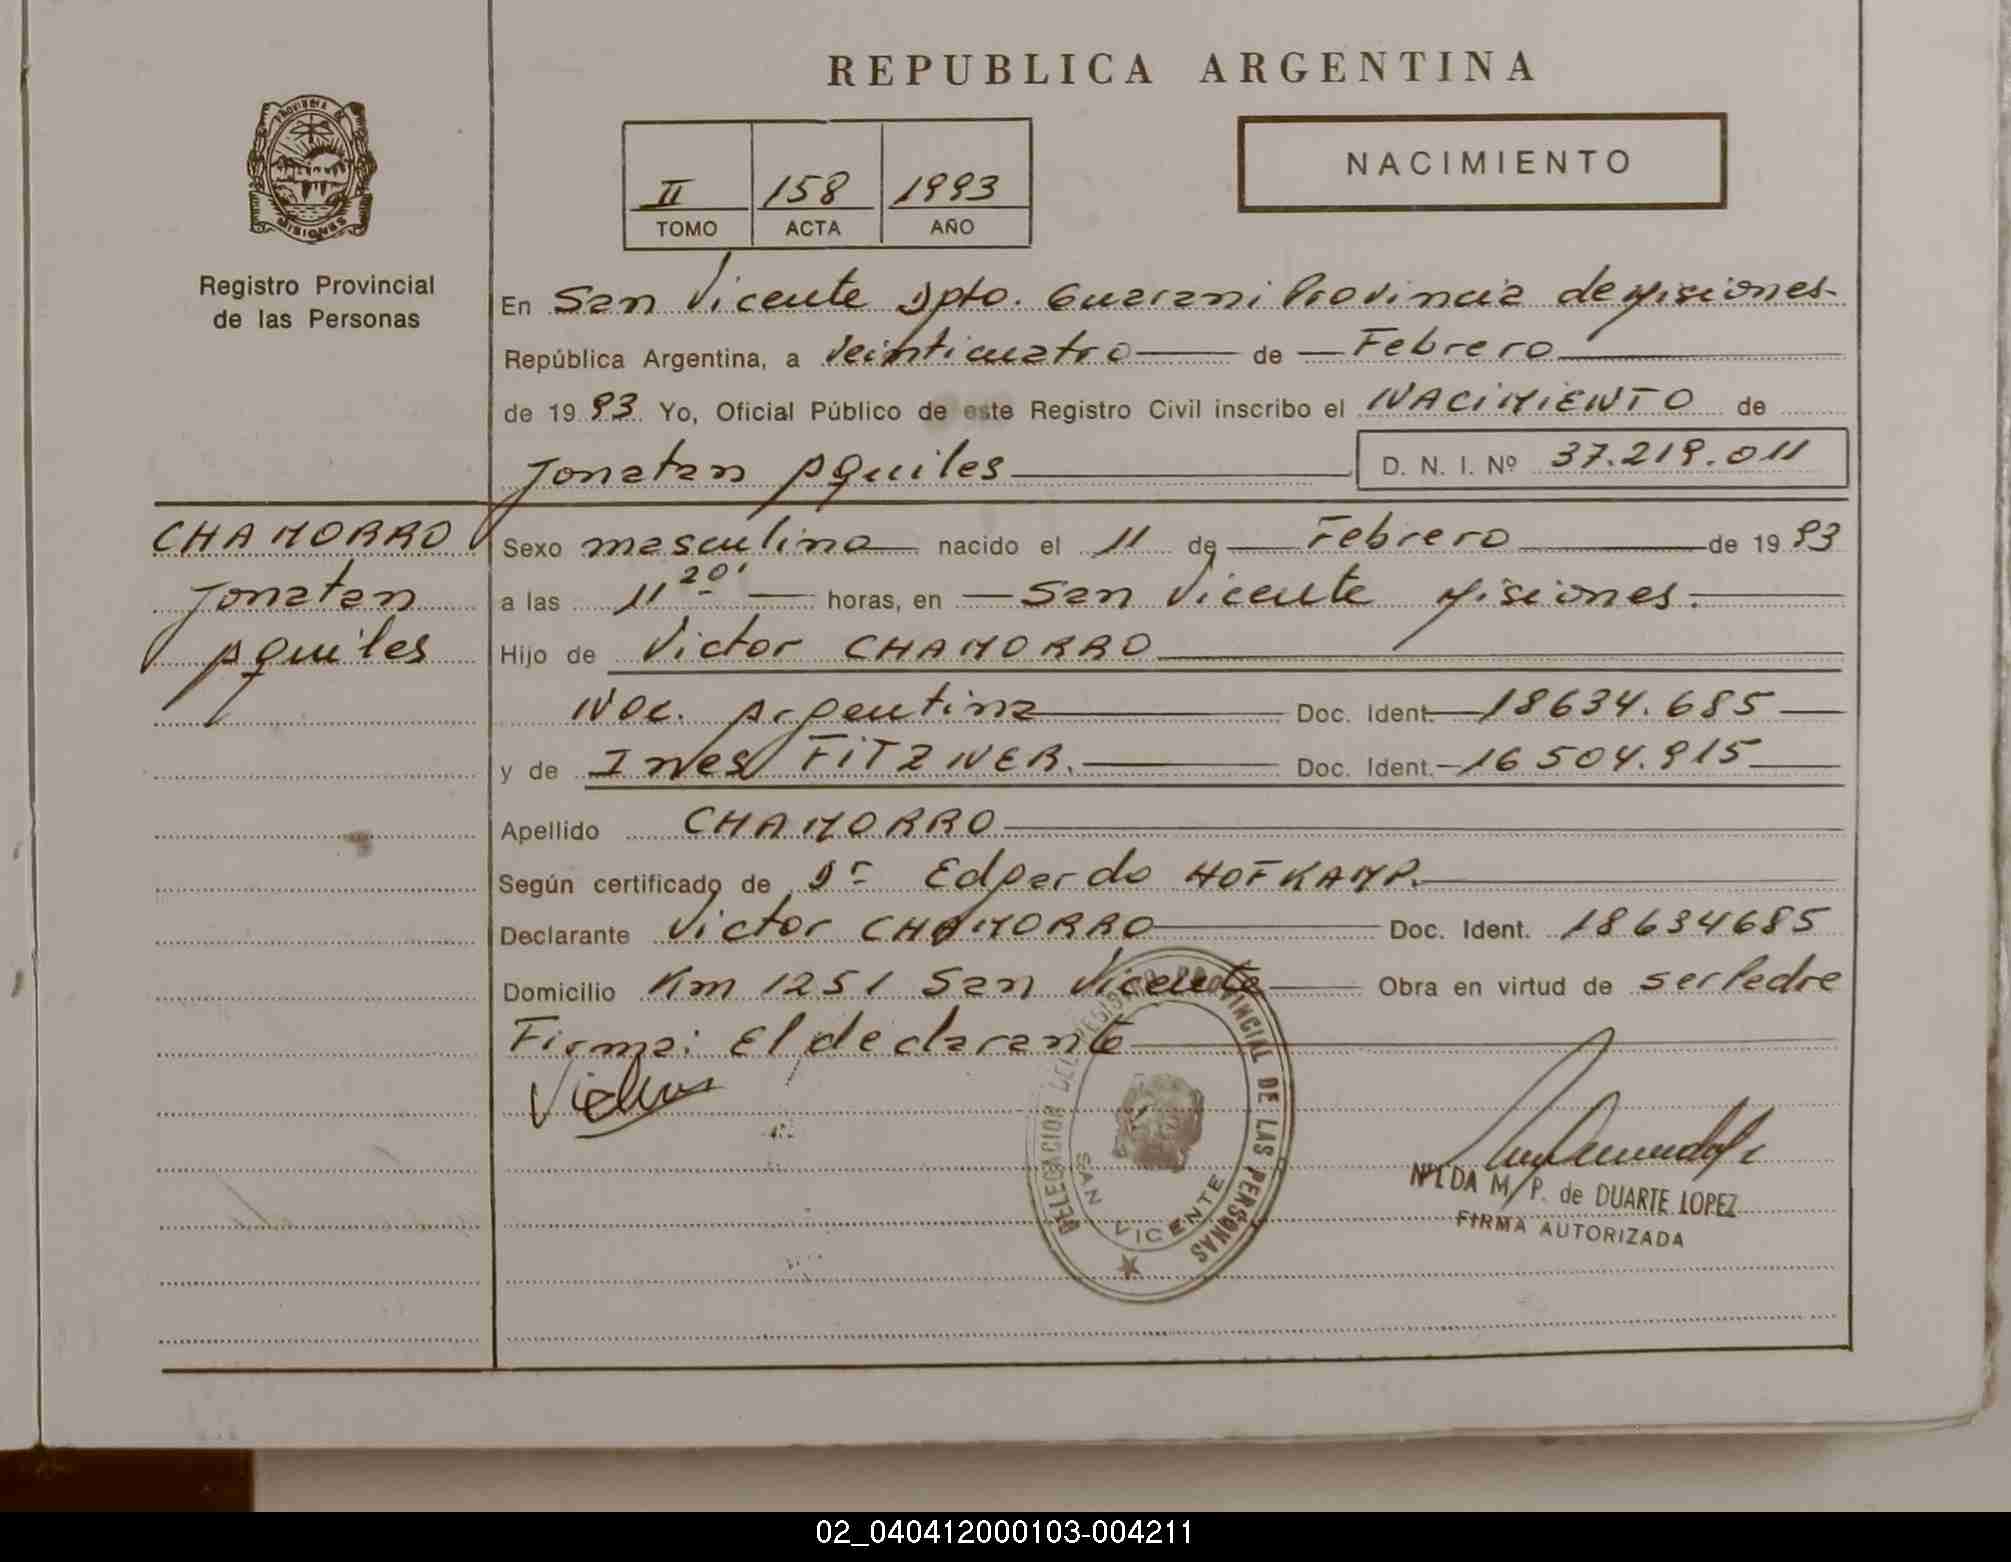 REPUBLICA ARGENTINA
PROVINCIA DE
MISIONES
Registro Provincial
de las Personas
II 158 1993
TOMO ACTA AÑO
NACIMIENTO
En San Vicente Dpto. Guarani Provincia de Misiones
República Argentina, a veinticuatro de Febrero
de 1993. Yo, Oficial Público de este Registro Civil inscribo el NACIMIENTO de
Jonatan Aquiles D. N. I. Nº 37.219.011
CHAMORRO
Jonatan
Aquiles
Sexo masculino nacido el 11 de Febrero de 1993
a las 11 20' horas, en San Vicente Misiones.
Hijo de Victor CHAMORRO
Nac. Argentina Doc. Ident. 18634.685
y de Ines FITZNER. Doc. Ident. 16504.915
Apellido CHAMORRO
Según certificado de Dr Edgardo HOFKAMP.
Declarante Victor CHAMORRO Doc. Ident. 18634685
Domicilio Km 1251 San Vicente Obra en virtud de ser Padre
Firma: El declarante
DELEGACION DEL REGISTRO PROVINCIAL DE LAS PERSONAS
SAN VICENTE
NILDA M. P. de DUARTE LOPEZ
FIRMA AUTORIZADA
02_040412000103-004211